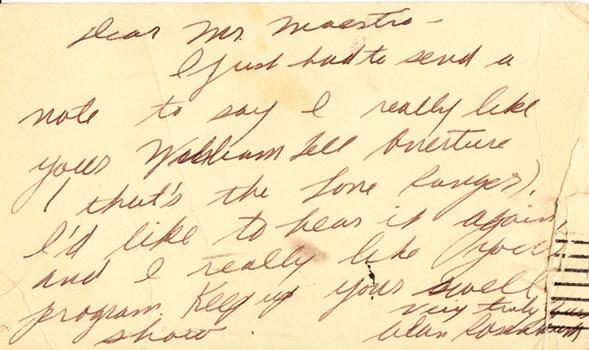 Dear Mr. Maestro -
I just had to send a
note to say I really like
your William Tell Overture
(that's the Lone Ranger).
I'd like to hear it again
and I really like your
program. Keep up your swell
show. very truly yours
Alan